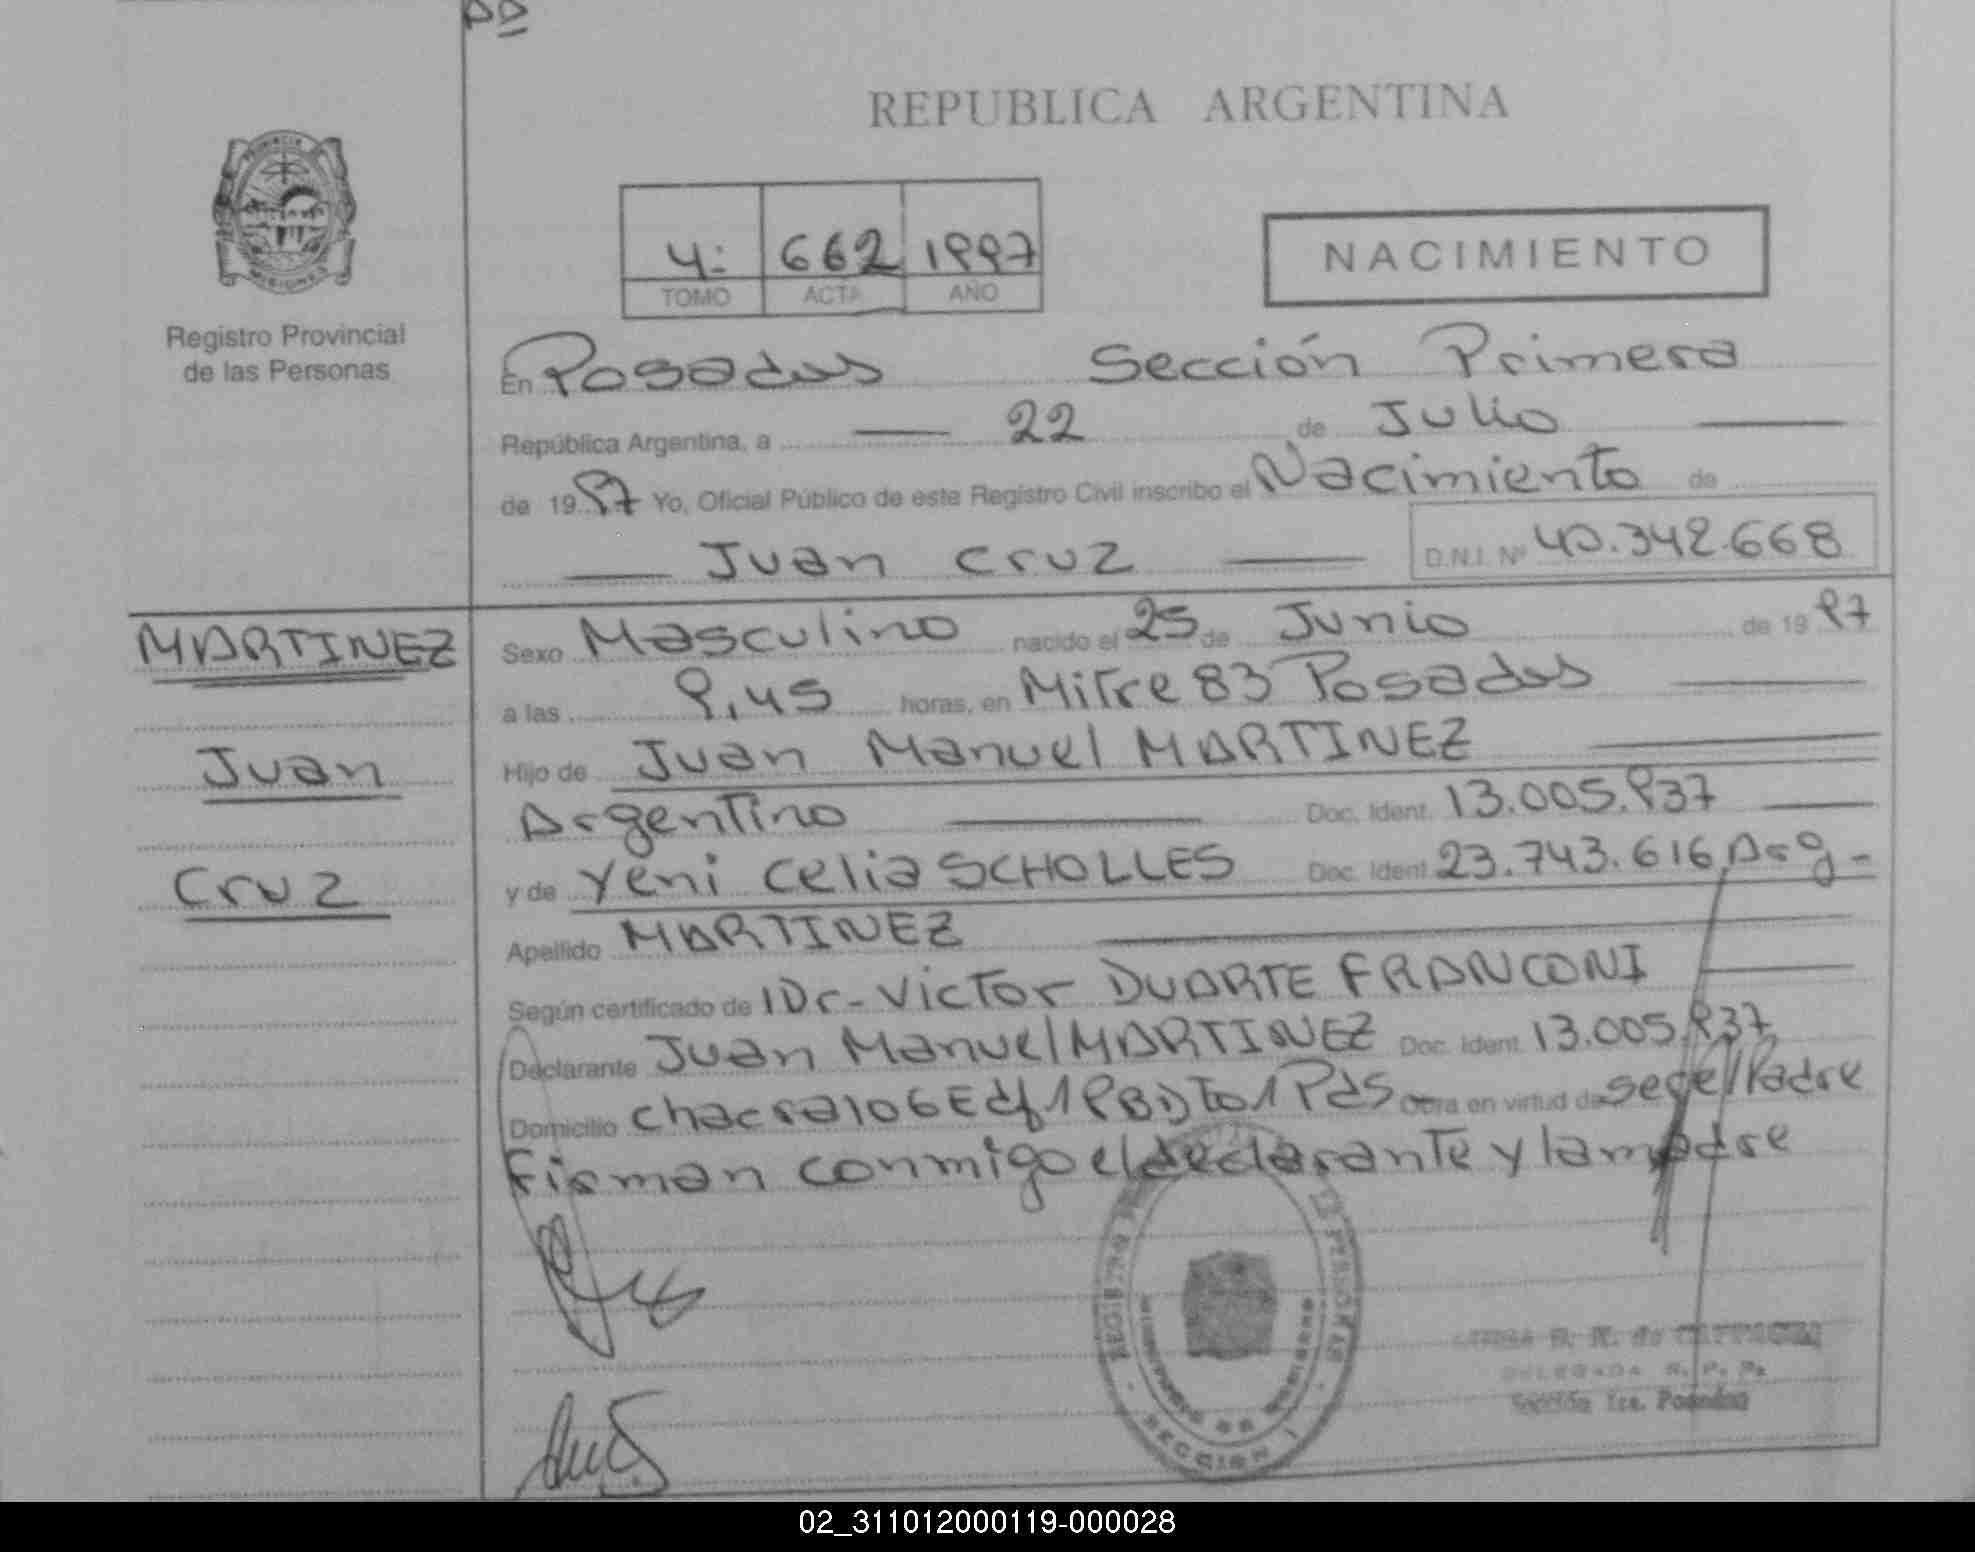 REPUBLICA ARGENTINA
PROVINCIA
MISIONES
Registro Provincial
de las Personas
4: 662 1997
TOMO ACTA AÑO
NACIMIENTO
En Posadas Sección Primera
República Argentina, a 22 de Julio
de 1997 Yo, Oficial Público de este Registro Civil inscribo el Nacimiento de
Juan Cruz D.N.I. Nº 40.342.668
MARTINEZ
Juan
Cruz
Sexo Masculino nacido el 25 de Junio de 1997
a las 9,45 horas, en Mitre 83 Posadas
Hijo de Juan Manuel MARTINEZ
Argentino Doc. Ident. 13.005.937
y de Yeni Celia SCHOLLES Doc. Ident. 23.743.616 Arg-
Apellido MARTINEZ
Según certificado de Dr- Victor DUARTE FRANCONI
Declarante Juan Manuel MARTINEZ Doc. Ident. 13.005.937
Domicilio Chacra 106 Edf 1 PB Dto 1 Pds- Obra en virtud de ser el Padre
Firman conmigo el declarante y la madre
SECCION 1
DELEGADA R. P. P.
Sección 1ra. Posadas
02_311012000119-000028